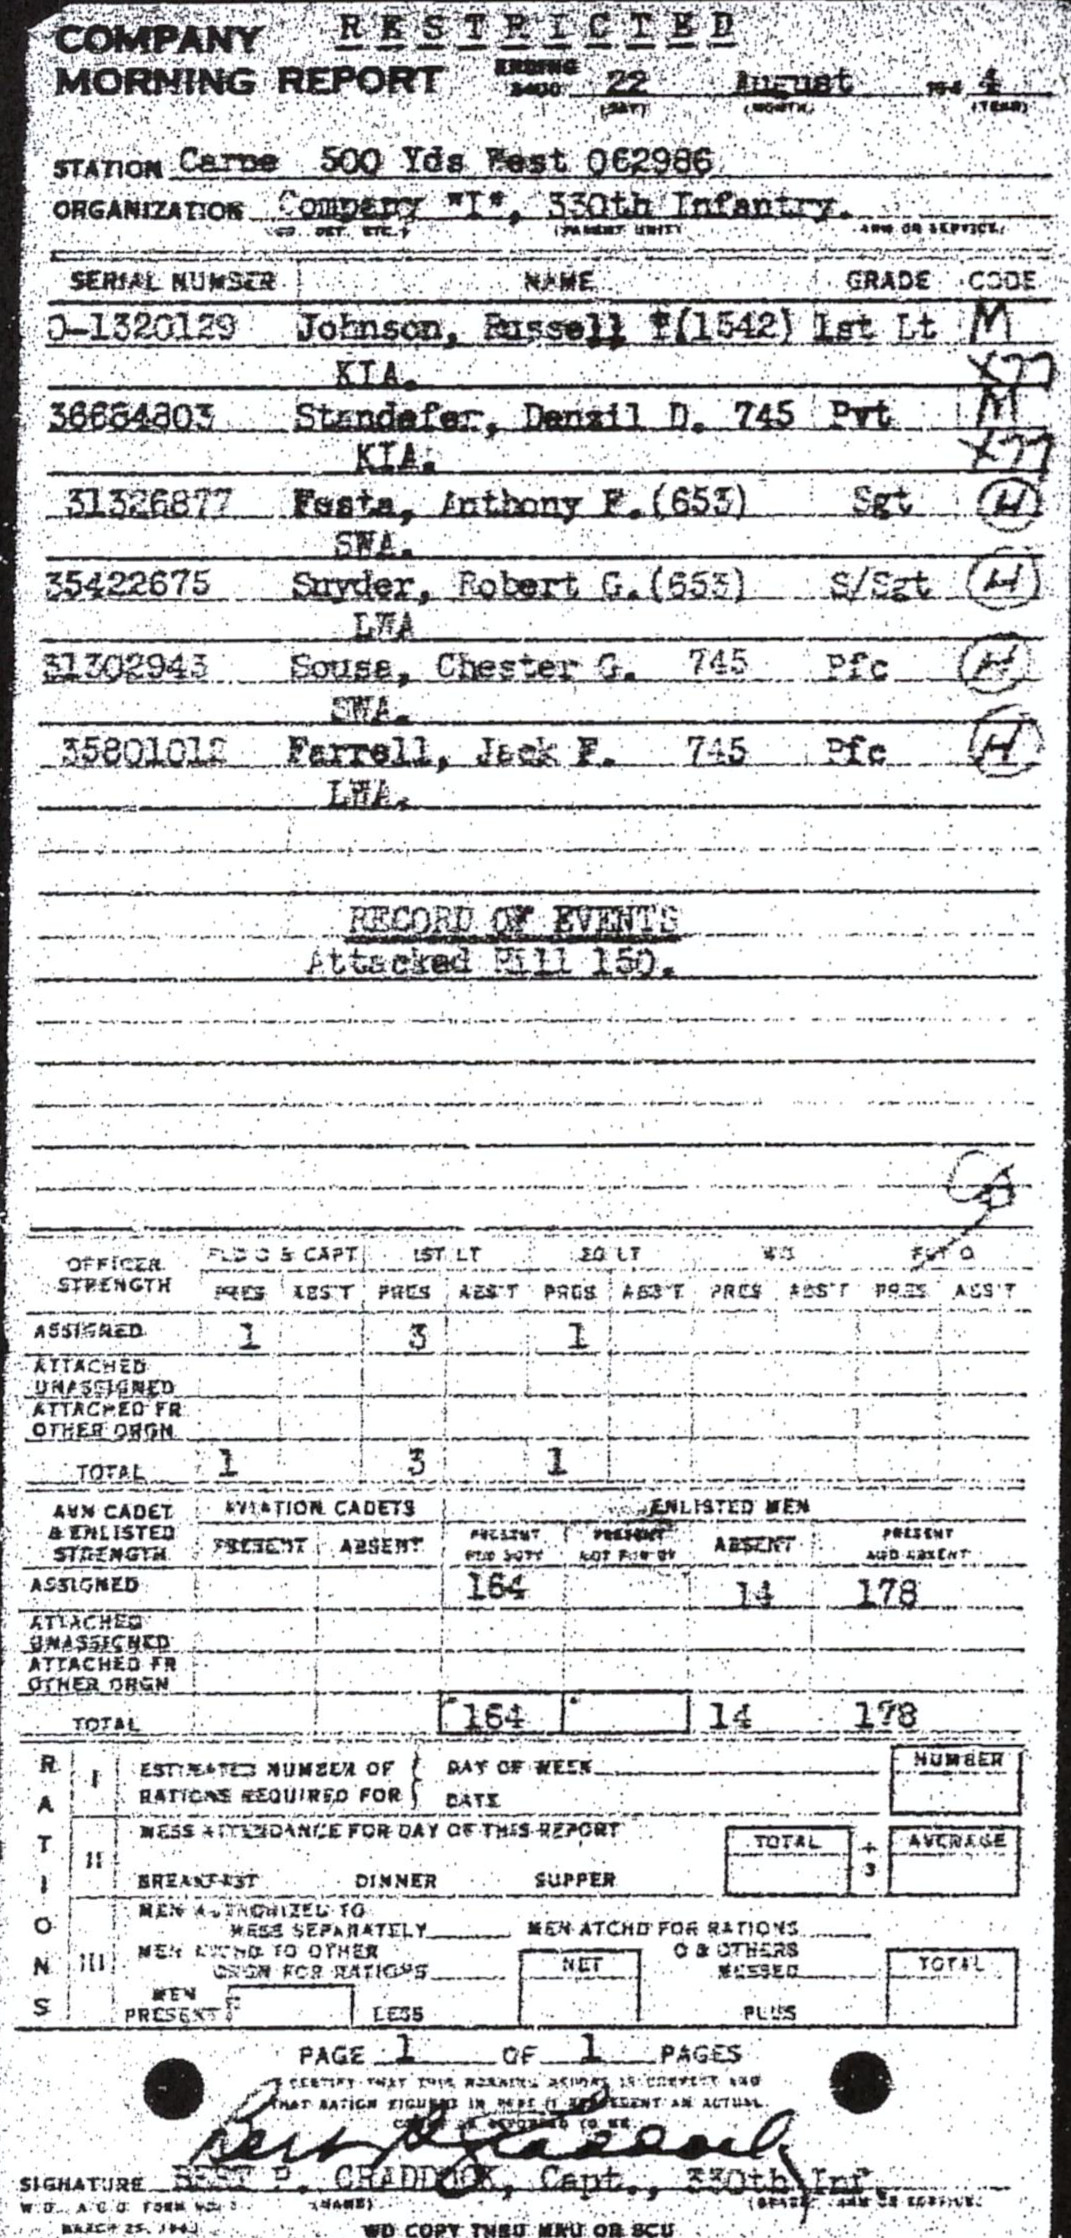 COMPANY
MORNING REPORT
RESTRICTED
ENDING 2400 22 August 194 4
(DAY) (MONTH) (YEAR)
STATION Carne 500 Yds West 062986
ORGANIZATION Company "I", 330th Infantry.
CO. DET. ETC. (PARENT UNIT) ARM OR SERVICE
SERIAL NUMBER NAME GRADE CODE
O-1320129 Johnson, Russell (1542) 1st Lt M
KIA. X77
36684803 Standefer, Denzil D. 745 Pvt M
KIA. X77
31326877 Festa, Anthony F.(653) Sgt H
SWA.
35422675 Snyder, Robert G.(653) S/Sgt H
LWA
31302943 Sousa, Chester G. 745 Pfc H
SWA.
35801012 Farrell, Jack F. 745 Pfc H
LWA.
RECORD OF EVENTS
Attacked Hill 150.
OFFICER STRENGTH
FLD O & CAPT 1ST LT 2D LT WO FLT O
PRES ABS'T PRES ABS'T PRES ABS'T PRES ABS'T PRES ABS'T
ASSIGNED 1 3 1
ATTACHED UNASSIGNED
ATTACHED FR OTHER ORGN
TOTAL 1 3 1
AVN CADET & ENLISTED STRENGTH
AVIATION CADETS ENLISTED MEN
PRESENT ABSENT PRESENT FOR DUTY PRESENT NOT FOR DY ABSENT PRESENT AND ABSENT
ASSIGNED 164 14 178
ATTACHED UNASSIGNED
ATTACHED FR OTHER ORGN
TOTAL 164 14 178
RATIONS
I ESTIMATED NUMBER OF RATIONS REQUIRED FOR DAY OF WEEK DATE NUMBER
II MESS ATTENDANCE FOR DAY OF THIS REPORT TOTAL ÷ 3 AVERAGE
BREAKFAST DINNER SUPPER
III MEN AUTHORIZED TO MESS SEPARATELY MEN ATCHD FOR RATIONS
MEN ATCHD TO OTHER ORGN FOR RATIONS NET O & OTHERS MESSED TOTAL
MEN PRESENT LESS PLUS
PAGE 1 OF 1 PAGES
I CERTIFY THAT THIS MORNING REPORT IS CORRECT AND
THAT RATION FIGURES IN PART II REPRESENT AN ACTUAL
COUNT OR REPORTED TO ME
SIGNATURE BERT P. CRADDOCK, Capt., 330th Inf.
(NAME) (GRADE) ARM OR SERVICE
W. D., A. G. O. FORM NO. 1
MARCH 25, 1943
WD COPY THRU MRU OR SCU